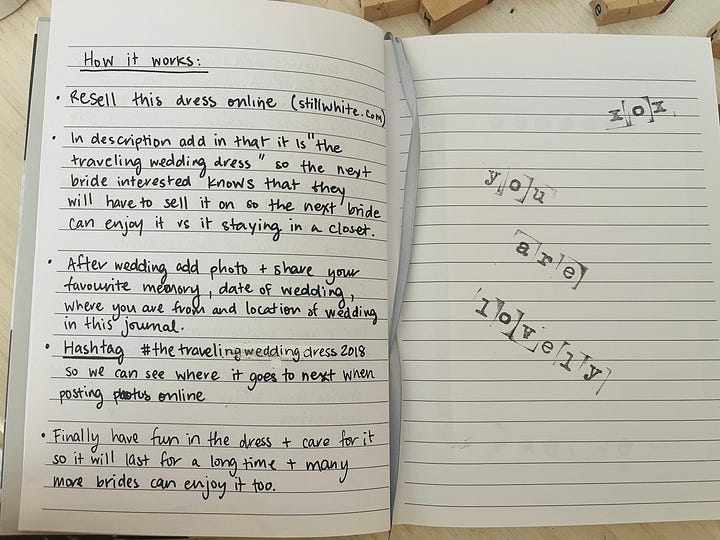 How it works:
• Resell this dress online (stillwhite.com)
• In description add in that it is "the
traveling wedding dress" so the next
bride interested knows that they
will have to sell it on so the next bride
can enjoy it vs it staying in a closet.
• After wedding add photo + share your
favourite memory, date of wedding,
where you are from and location of wedding
in this journal.
• Hashtag #thetravelingweddingdress2018
so we can see where it goes to next when
posting photos online
• Finally have fun in the dress + care for it
so it will last for a long time + many
more brides can enjoy it too.
xox
you
are
lovely